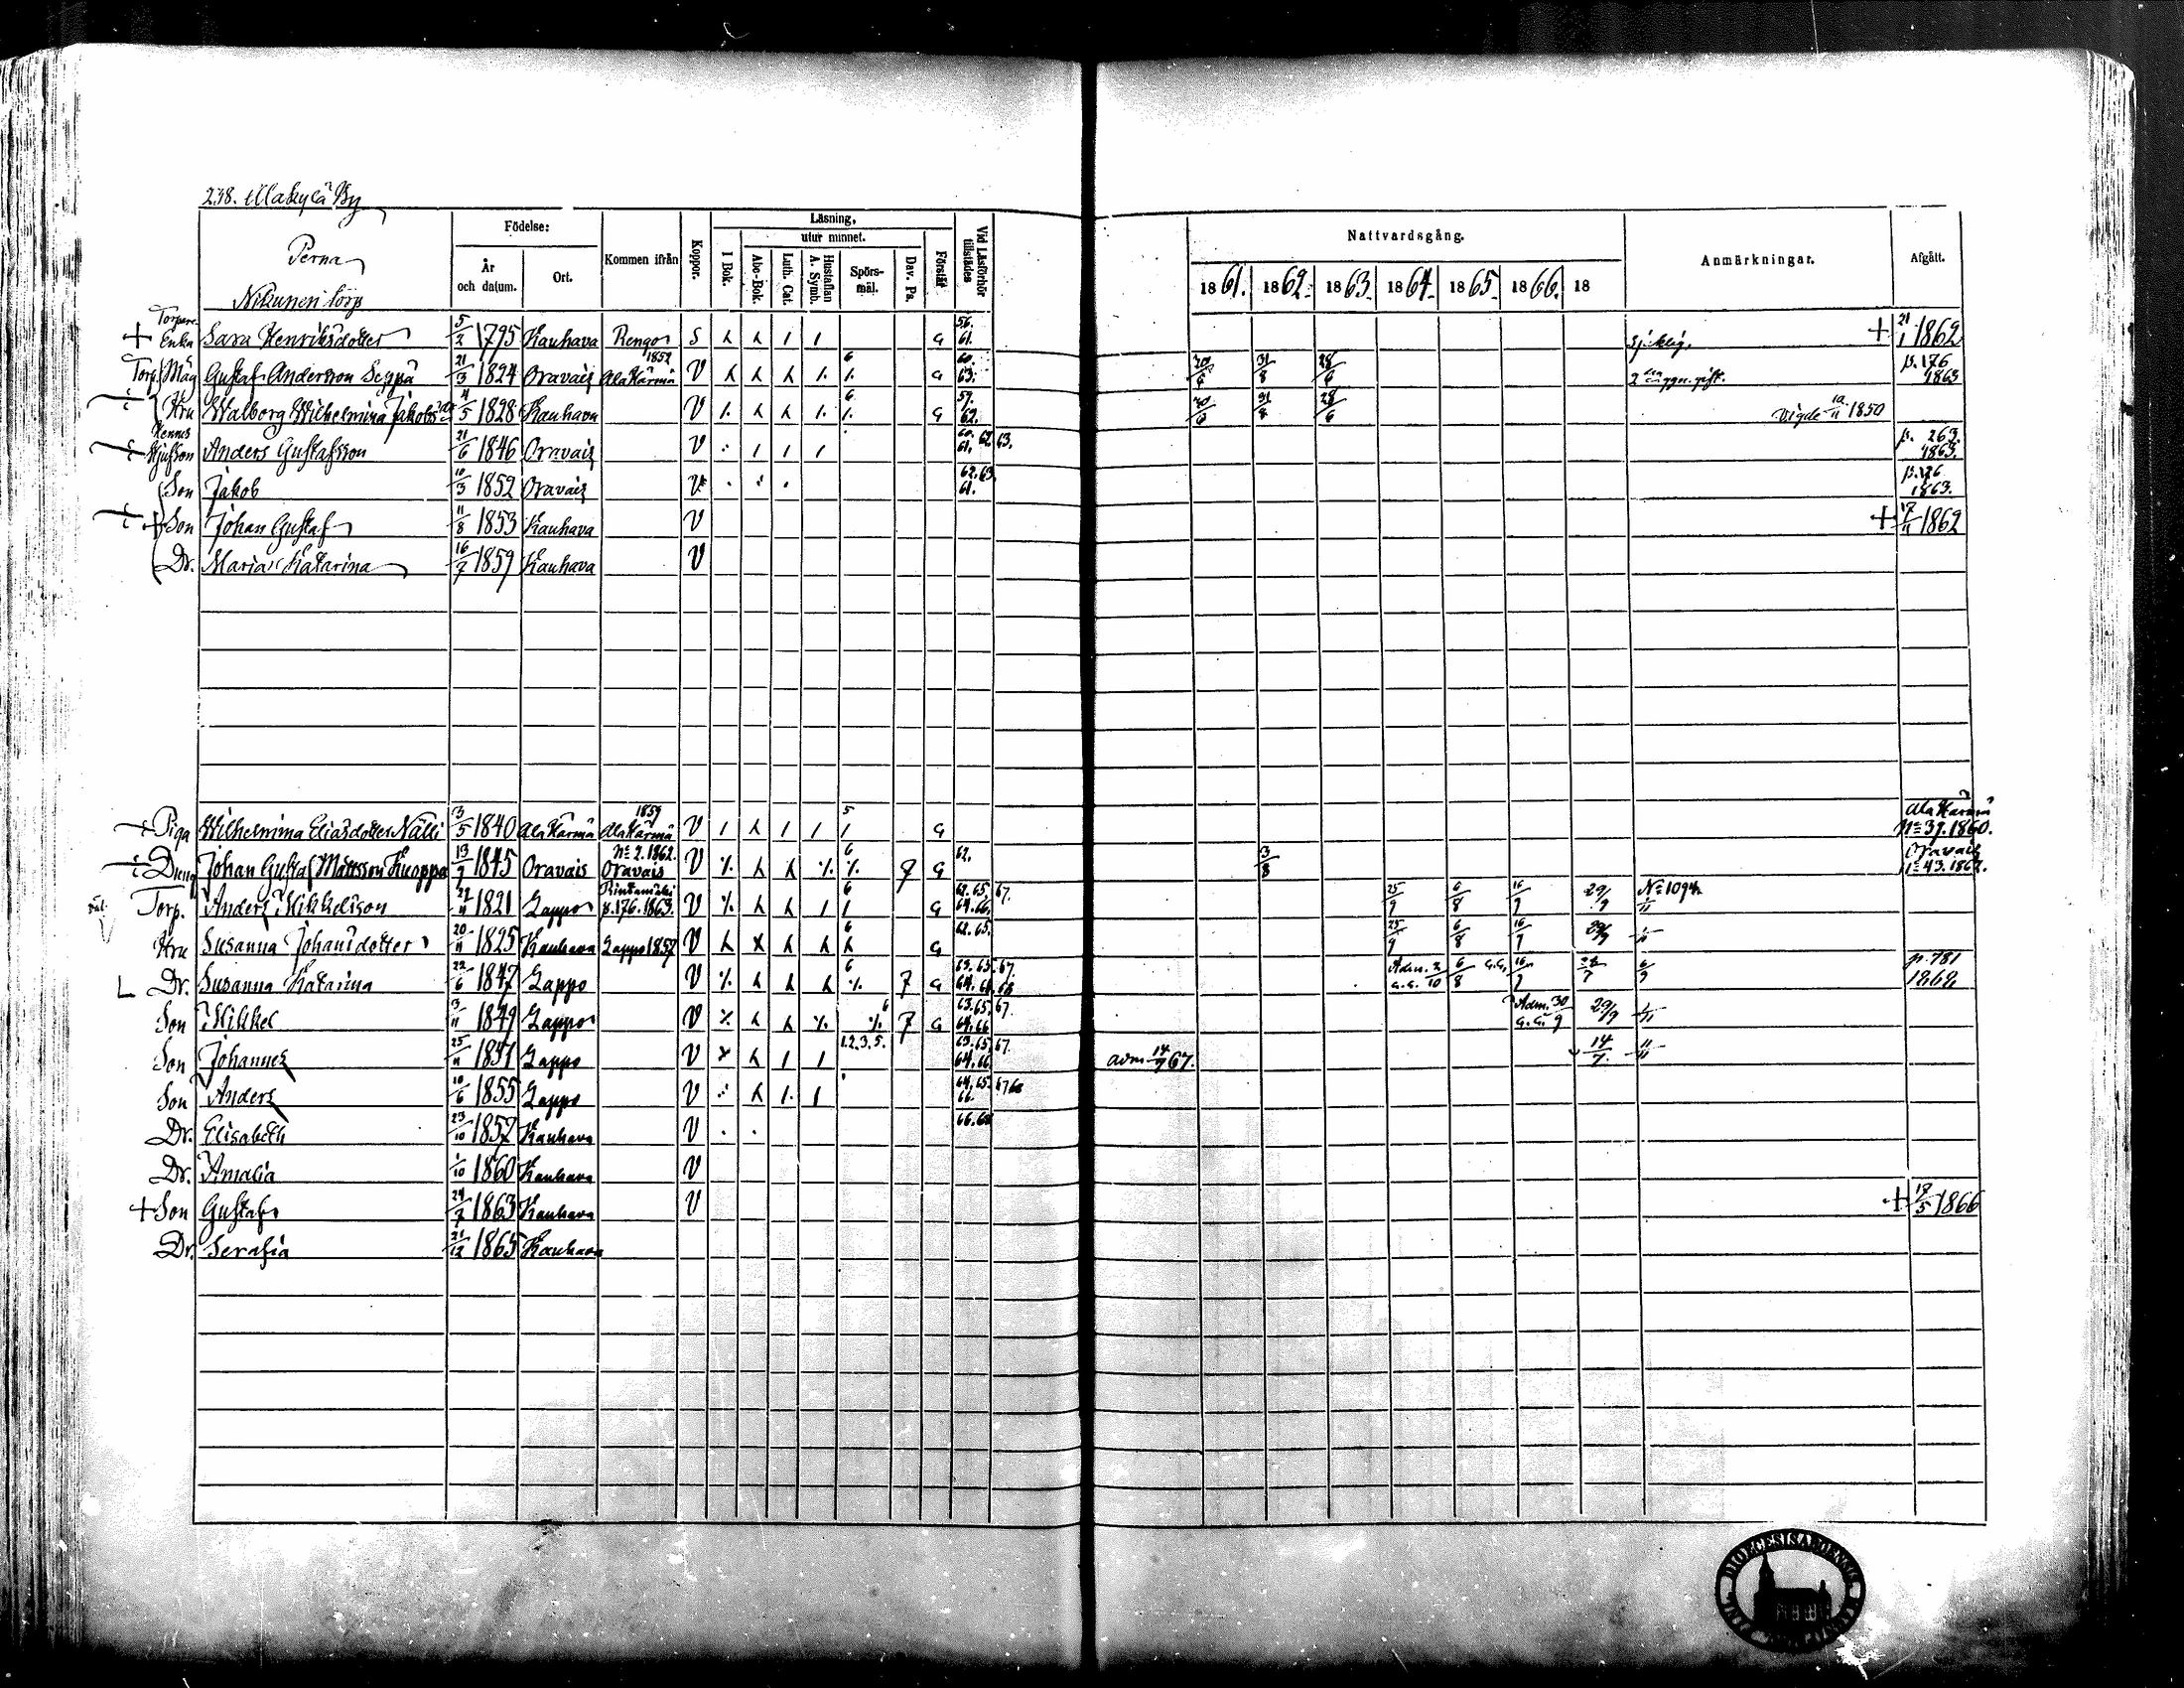 238. Alakylä By
Perna
Nikuneri torp
Födelse: År och datum. Ort. Kommen ifrån Koppor. Läsning, I Bok. utur minnet. Abc-Bok. Luth. Cat. Hustaflan A. Symb. Spörsmål. Dav. Ps. Förstår Vid Läsförhör tillstädes Nattvardsgång. 1861. 1862. 1863. 1864. 1865. 1866. 18 Anmärkningar. Afgått.
+ Torpare Enka Sara Henriksdotter 5/2 1795 Kauhava Rengo S G 56. 61. sjuklig. + 21/1 1862
Torp. Måg Gustaf Andersson Seppä 21/3 1824 Oravais 1852 Ala Kärmä V 6 G 60. 63. 30/6 31/8 28/6 2 dra ggn. gift. p. 176 1863
Hru Walborg Wilhelmina Jakobsdr 4/5 1828 Kauhava V 6 G 57. 62. 30/6 31/8 28/6 vigde 10/11 1850
Hennes Styfson Anders Gustafsson 21/6 1846 Oravais V 60. 61. 62 63. p. 263. 1863.
Son Jakob 10/3 1852 Oravais V 62. 63. 61. p. 176 1863.
+ Son Johan Gustaf 11/8 1853 Kauhava V + 17/11 1862
Dr. Maria Katarina 16/7 1859 Kauhava V
Piga Wilhelmina Eliasdotter Nälli 13/5 1840 Ala Kärmä 1859 Ala Kärmä V 5 G Ala Kärmä No 37. 1860.
Dreng Johan Gustaf Mattsson Knoppa 13/9 1845 Oravais No 2. 1862. Oravais V 6 7 G 62. 3/8 Oravais No 43. 1862.
Torp. Anders Mikkelsson 22/11 1821 Lappo p. 176. 1863. V 6 G 62. 65. 67. 64. 66. 25/9 6/8 16/9 29/9 No 1094
Hru Susanna Johansdotter 20/11 1825 Kauhava Lappo 1857 V 6 G 62. 65. 25/9 6/8 16/9 29/9
Dr. Susanna Katarina 22/6 1847 Lappo V 6 7 G 63. 65. 67. Adm. 2/10 6/8 16/9 6/9 p. 781 1868
Son Mikkel 3/11 1849 Lappo V 6 7 G 63. 65. 67. 64. 66 Adm. 30/9 29/9
Son Johannes 25/11 1851 Lappo V 1.2.3.5. 63. 65. 67. 64. 66. adm. 14/7 67. 14/7. 11/11
Son Anders 10/6 1855 Lappo V 64. 65. 67 68 66.
Dr. Elisabeth 23/10 1857 Kauhava V 66. 68
Dr. Amalia 1/10 1860 Kauhava V
+ Son Gustaf 24/7 1863 Kauhava V + 17/5 1866
Dr. Serafia 21/12 1865 Kauhava